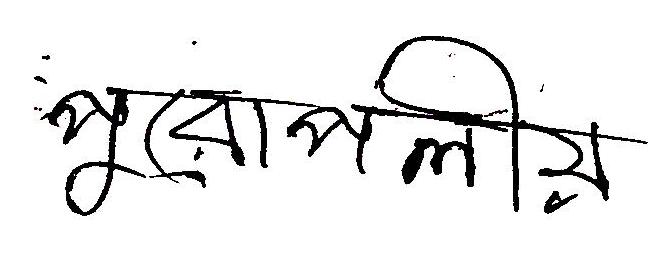 পুরোপলীয়